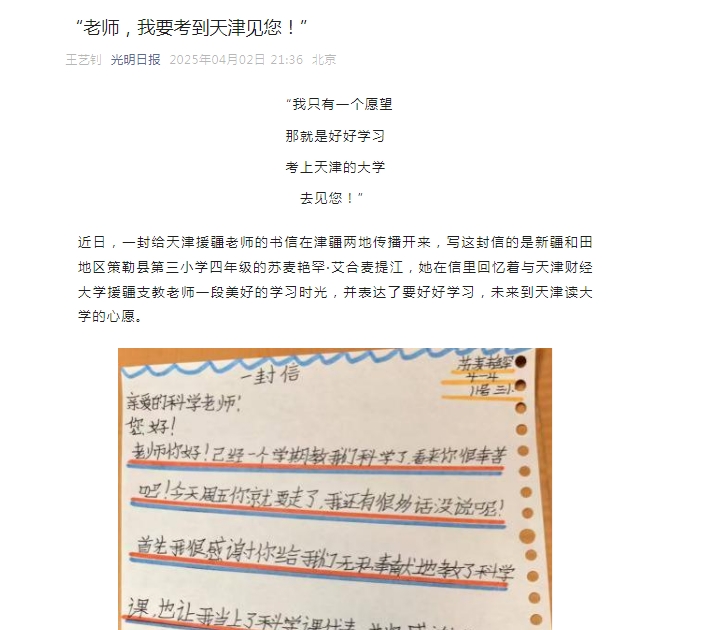 “老师，我要考到天津见您！”
王艺钊 光明日报 2025年04月02日 21:36 北京
“我只有一个愿望
那就是好好学习
考上天津的大学
去见您！”
近日，一封给天津援疆老师的书信在津疆两地传播开来，写这封信的是新疆和田
地区策勒县第三小学四年级的苏麦艳罕·艾合麦提江，她在信里回忆着与天津财经
大学援疆支教老师一段美好的学习时光，并表达了要好好学习，未来到天津读大
学的心愿。
苏麦艳罕
一封信
4-4
亲爱的科学老师！
您好！
老师你好！已经一个学期教我们科学了,看来你很辛苦
吧！今天周五你就要走了,我还有很多话没说呢！
首先我很感谢你给我们无私奉献地教了科学
课,也让我当上了科学课代表